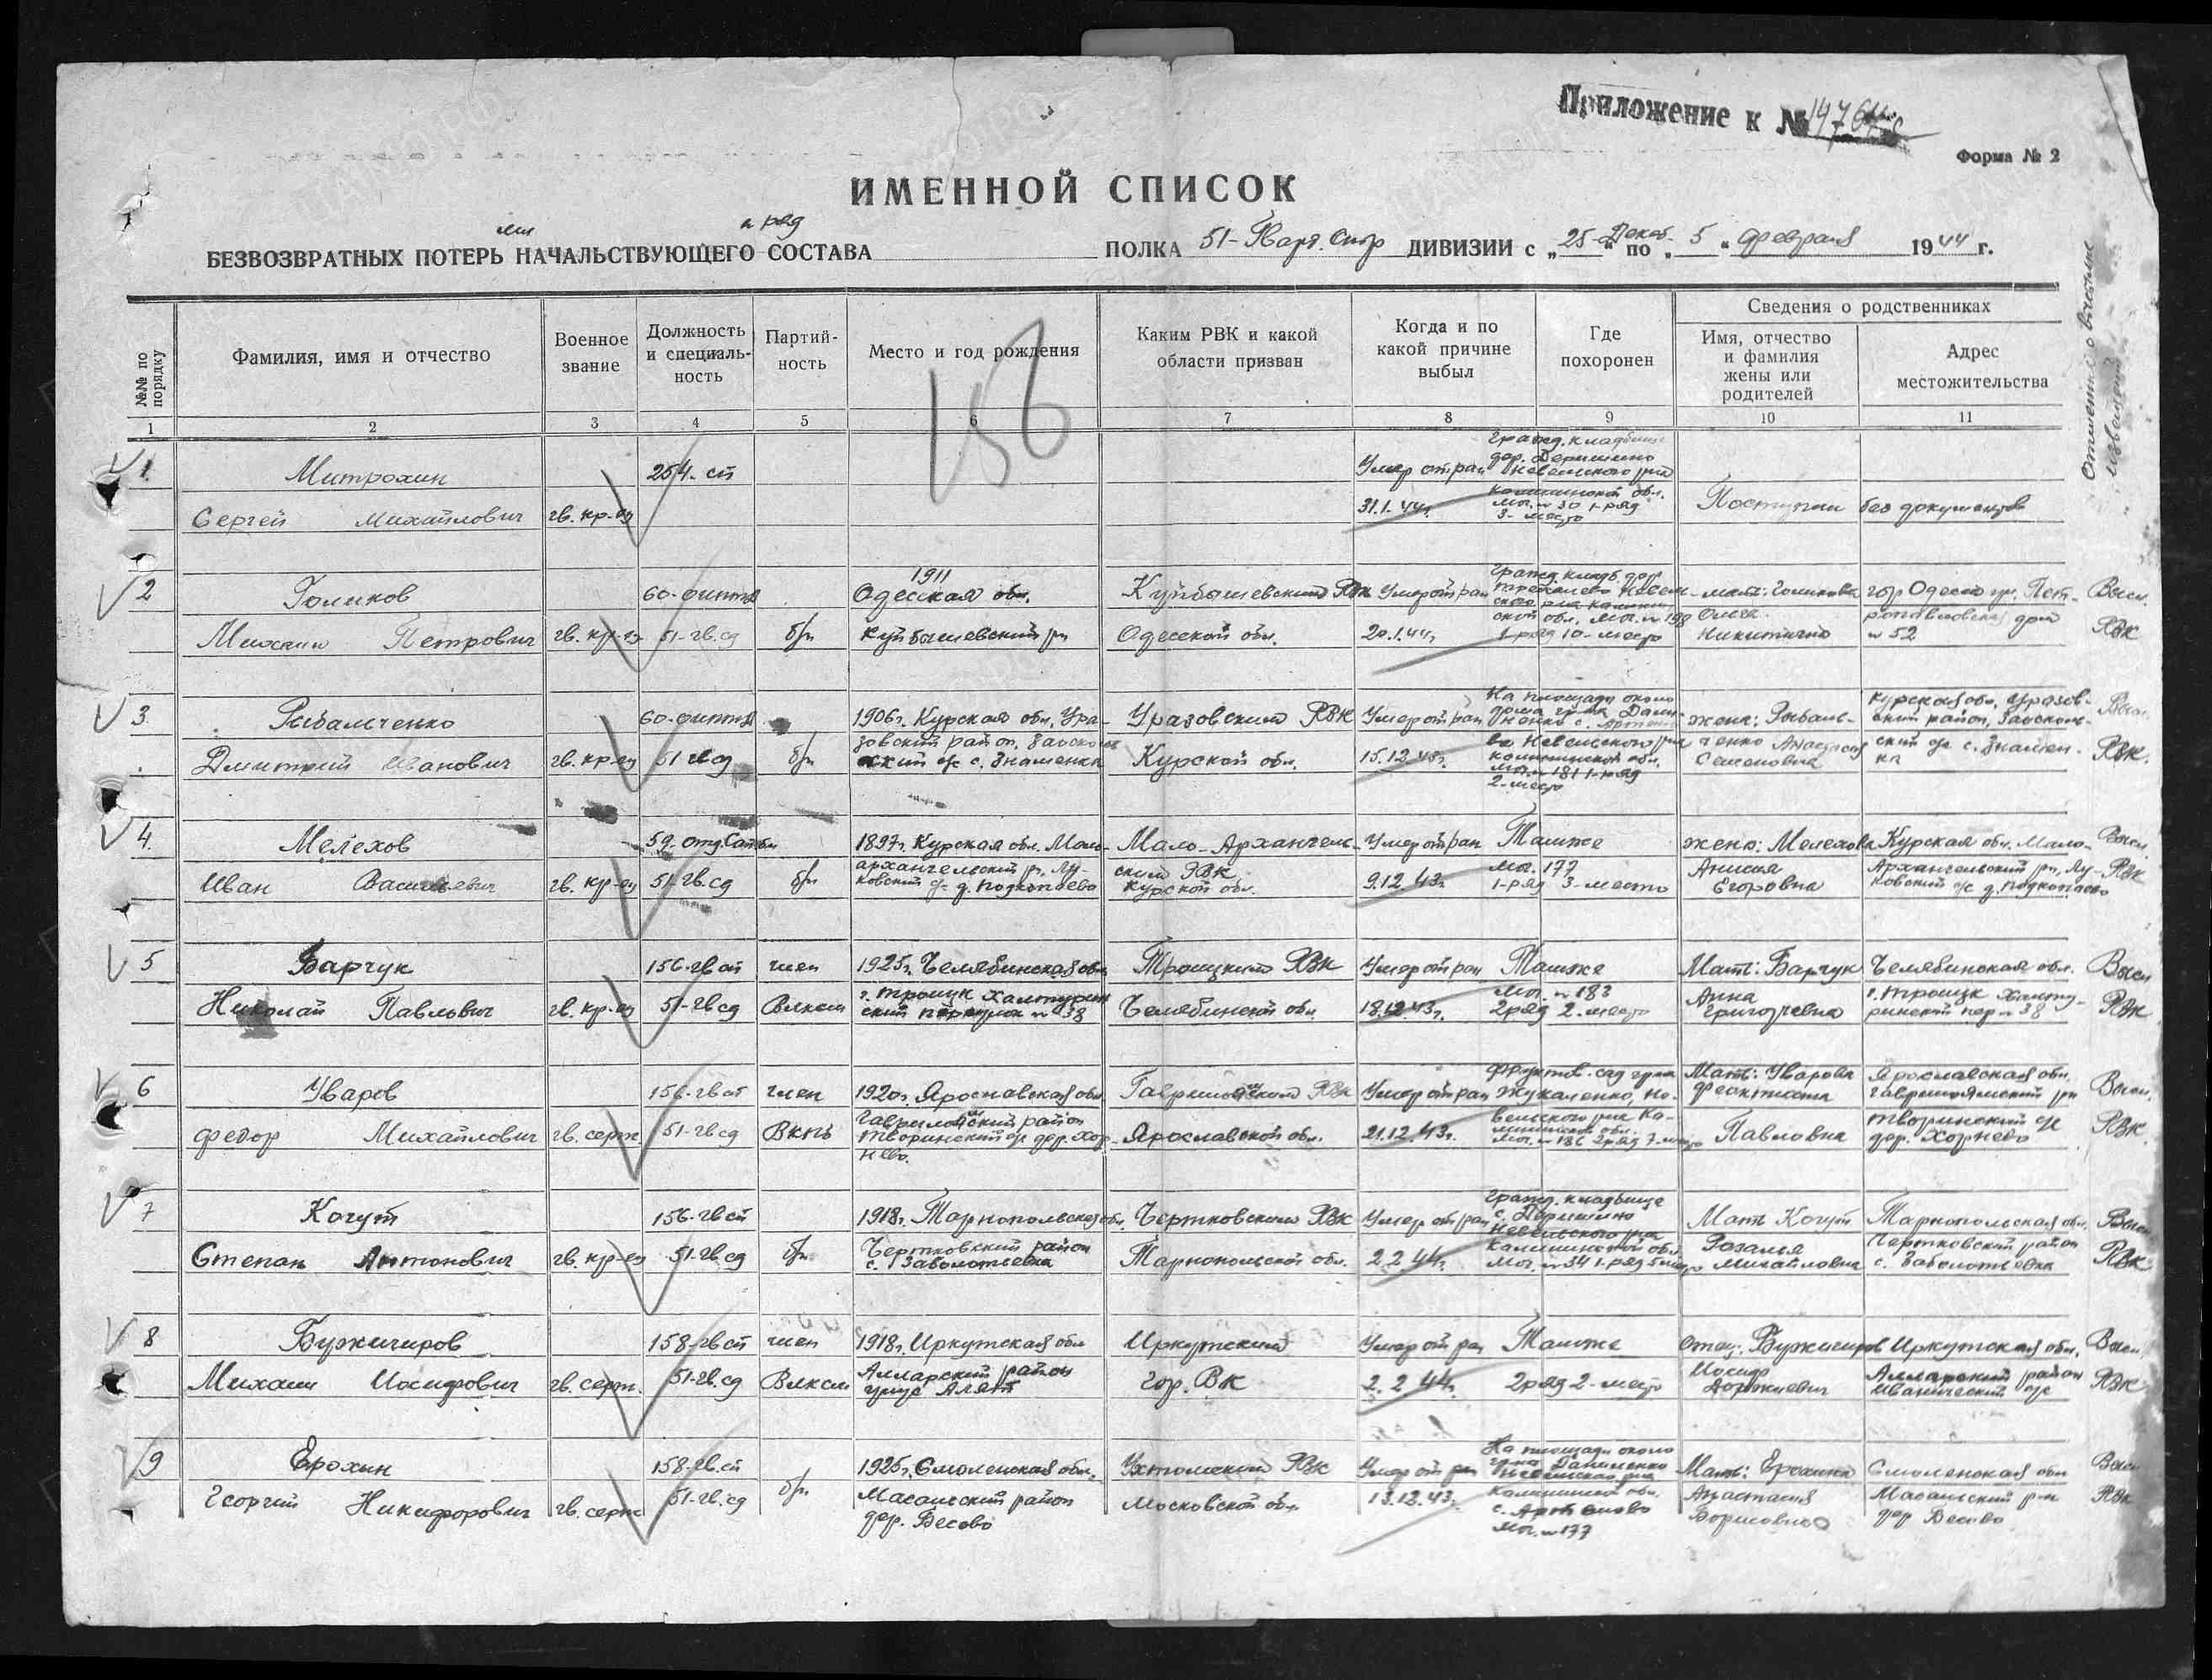 Приложение к №
Форма № 2
ИМЕННОЙ СПИСОК
и ряд
БЕЗВОЗВРАТНЫХ ПОТЕРЬ НАЧАЛЬСТВУЮЩЕГО СОСТАВА ПОЛКА 51-Гвард. Стр ДИВИЗИИ с „25-Декаб." по „5" февраля 1944 г.
№№ по порядку
Фамилия, имя и отчество
Военное звание
Должность и специаль-ность
Партий-ность
Место и год рождения
Каким РВК и какой области призван
Когда и по какой причине выбыл
Где похоронен
Сведения о родственниках
Имя, отчество и фамилия жены или родителей
Адрес местожительства
1 2 3 4 5 6 7 8 9 10 11
156
1 Митрохин 254. сп Умер от ран Гражд. кладбище
дер. Перишино
Невельского р-на
Сергей Михайлович гв. кр-ец 31.1.44г. Калининской обл.
мог. № 30 1-ряд
3-место
Поступил без документов
2 Голиков 60-ОИПТД 1911 Одесская обл. Куйбышевский РВК Умер от ран Гражд. кладб. дер.
Невель- мать: Голикова гор Одесса ул. Пет- Высл.
Михаил Петрович гв. кр-ец 51-гв.сд б/п Куйбышевский р-н Одесской обл. 20.1.44г. ской обл. мог. № 198
1-ряд 10-место
Ольга
Никитична
№ 52 РВК
3. Рыбальченко 60-ОИПТД 1906г. Курская обл. Ура- Уразовский РВК Умер от ран На площади около
дома гр-на Дани-
ленко с. Артемо-
жена: Рыбаль- Курская обл. Уразов-
ский район, Заосколь-
Высл.
Дмитрий Иванович гв. кр-ец 51 гв сд б/п зовский район, Заосколь
ский с/с с. Знаменка
Курской обл. 15.12.43г. во Невельского р-на
Калининской обл.
мог. № 181 1-ряд
2-место
ченко Анастасия
Семеновна
ский с/с с. Знамен-
ка
РВК.
4. Мелехов 59. отд. Сапбн 1897г. Курская обл. Мало- Мало-Архангель- Умер от ран Там же жена: Мелехова Курская обл. Мало- Высл
Иван Васильевич гв. кр-ец 51-гв.сд б/п архангельский р-н, Лу-
ковский с/с д. Подкопаево
ский РВК
Курской обл.
9.12.43г. мог. 177
1-ряд 3-место
Анисия
Егоровна
Архангельский р-н, Лу-
ковский с/с д. Подкопаево
РВК
5 Барчук 156-гв сп член 1925г. Челябинская обл Троицкий РВК Умер от ран Там же Мать: Барчук Челябинская обл. Высл
Николай Павлович гв. кр-ец 51-гв сд Влксм г. Троицк Халтурин
ский переулок № 38
Челябинской обл. 18.12.43г. мог. № 183
2 ряд 2-место
Анна
Григорьевна
г. Троицк Халту-
ринский пер № 38
РВК
6 Уваров 156-гв сп член 1920г. Ярославская обл Гаврилоямский РВК Умер от ран Фруктов. сад гр-на
Жукаленко, Не-
Мать: Уварова
Феоктиста
Ярославская обл.
Гаврилоямский р-н
Высл.
Федор Михайлович гв. серж. 51-гв сд Вкпб Гаврилоямский район
Творинский с/с дер. Хор-
нево.
Ярославской обл. 21.12.43г. вельского р-на Ка-
лининской обл.
мог. № 186 2 ряд 7-место
Павловна Творинский с/с
дер. Хорнево
РВК.
7 Когут 156-гв сп 1918г. Тарнопольская обл. Чертковский РВК Умер от ран Гражд. кладбище
с. Перишино
Невельского р-на
Мать Когут Тарнопольская обл. Высл
Степан Антонович гв. кр-ец 51-гв сд б/п Чертковский район
с. Заболотьевка
Тарнопольской обл. 2.2.44г. Калининской обл.
мог. № 34 1-ряд 5 место
Розалья
Михайловна
Чертковский район
с. Заболотьевка
РВК
8 Бужигиров 158-гв сп член 1918г. Иркутская обл Иркутский Умер от ран Там же Отец: Бужигиров Иркутская обл. Высл.
Михаил Иосифович гв. серж. 51-гв.сд Влксм Аларский район
улус Алят
гор. ВК 2.2.44г. 2 ряд 2-место Иосиф
Доржиевич
Аларский район
Иванический с/с
РВК
9 Ерохин 158-гв.сп 1925г. Смоленская обл. Ухтомский РВК Умер от ран На площади около
гр-на Даниленко
Невельского р-на
Мать: Ерохина Смоленская обл Высл
Георгий Никифорович гв. серж 51-гв.сд б/п Масальский район
дер. Бесово
Московской обл. 13.12.43г. Калининской обл.
с. Артемово
мог. № 177
Анастасия
Борисовна
Масальский р-н
дер Бесово
РВК